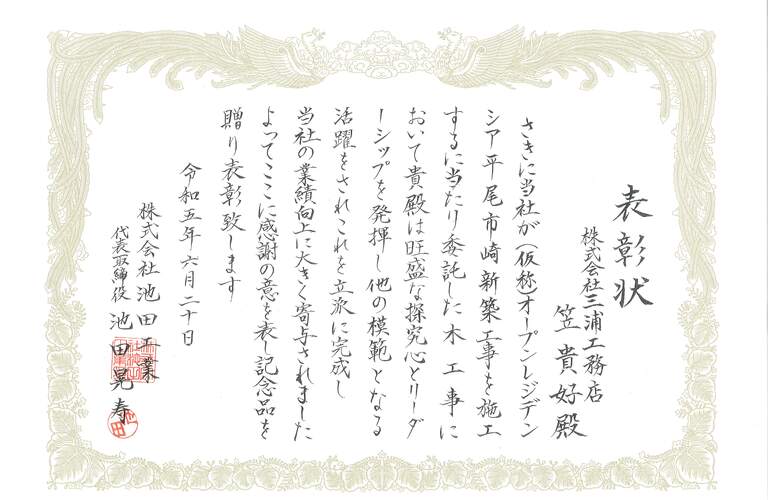 表彰状
株式会社三浦工務店
笠貴好殿
さきに当社が(仮称)オープンレジデン
シア平尾市崎新築工事を施工
するに当たり委託した木工事に
おいて貴殿は旺盛な探究心とリーダ
ーシップを発揮し他の模範となる
活躍をされこれを立派に完成し
当社の業績向上に大きく寄与されました
よってここに感謝の意を表し記念品を
贈り表彰致します
令和五年六月二十日
株式会社池田工業
代表取締役 池田晃寿